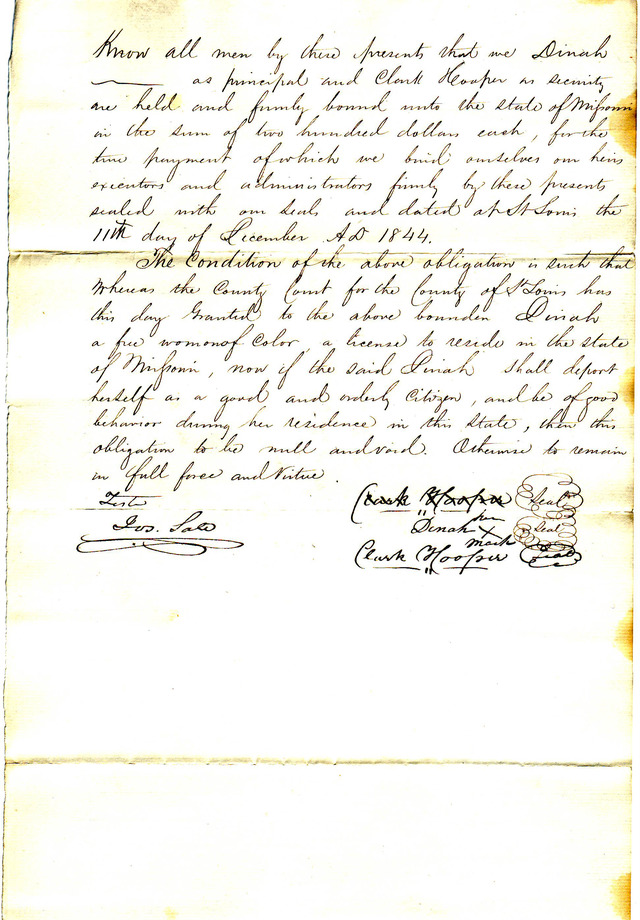 Know all men by these presents that we Dinah
as principal and Clark Hooper as security
are held and firmly bound unto the state of Missouri
in the sum of two hundred dollars each, for the
true payment of which we bind ourselves our heirs
executors and administrators firmly by these presents
sealed with our seals and dated at St Louis the
11th day of December AD 1844.
The Condition of the above obligation is such that
Whereas the County Court for the County of St Louis has
this day Granted to the above bounden Dinah
a free woman of Color, a license to reside in the state
of Missouri, now if the said Dinah shall deport
herself as a good and orderly Citizen, and be of good
behavior during her residence in this State, then this
obligation to be null and void. Otherwise to remain
in full force and Virtue.
Teste
Clark Hooper Seal
Jos.
Dinah her X mark Seal
Clark Hooper Seal